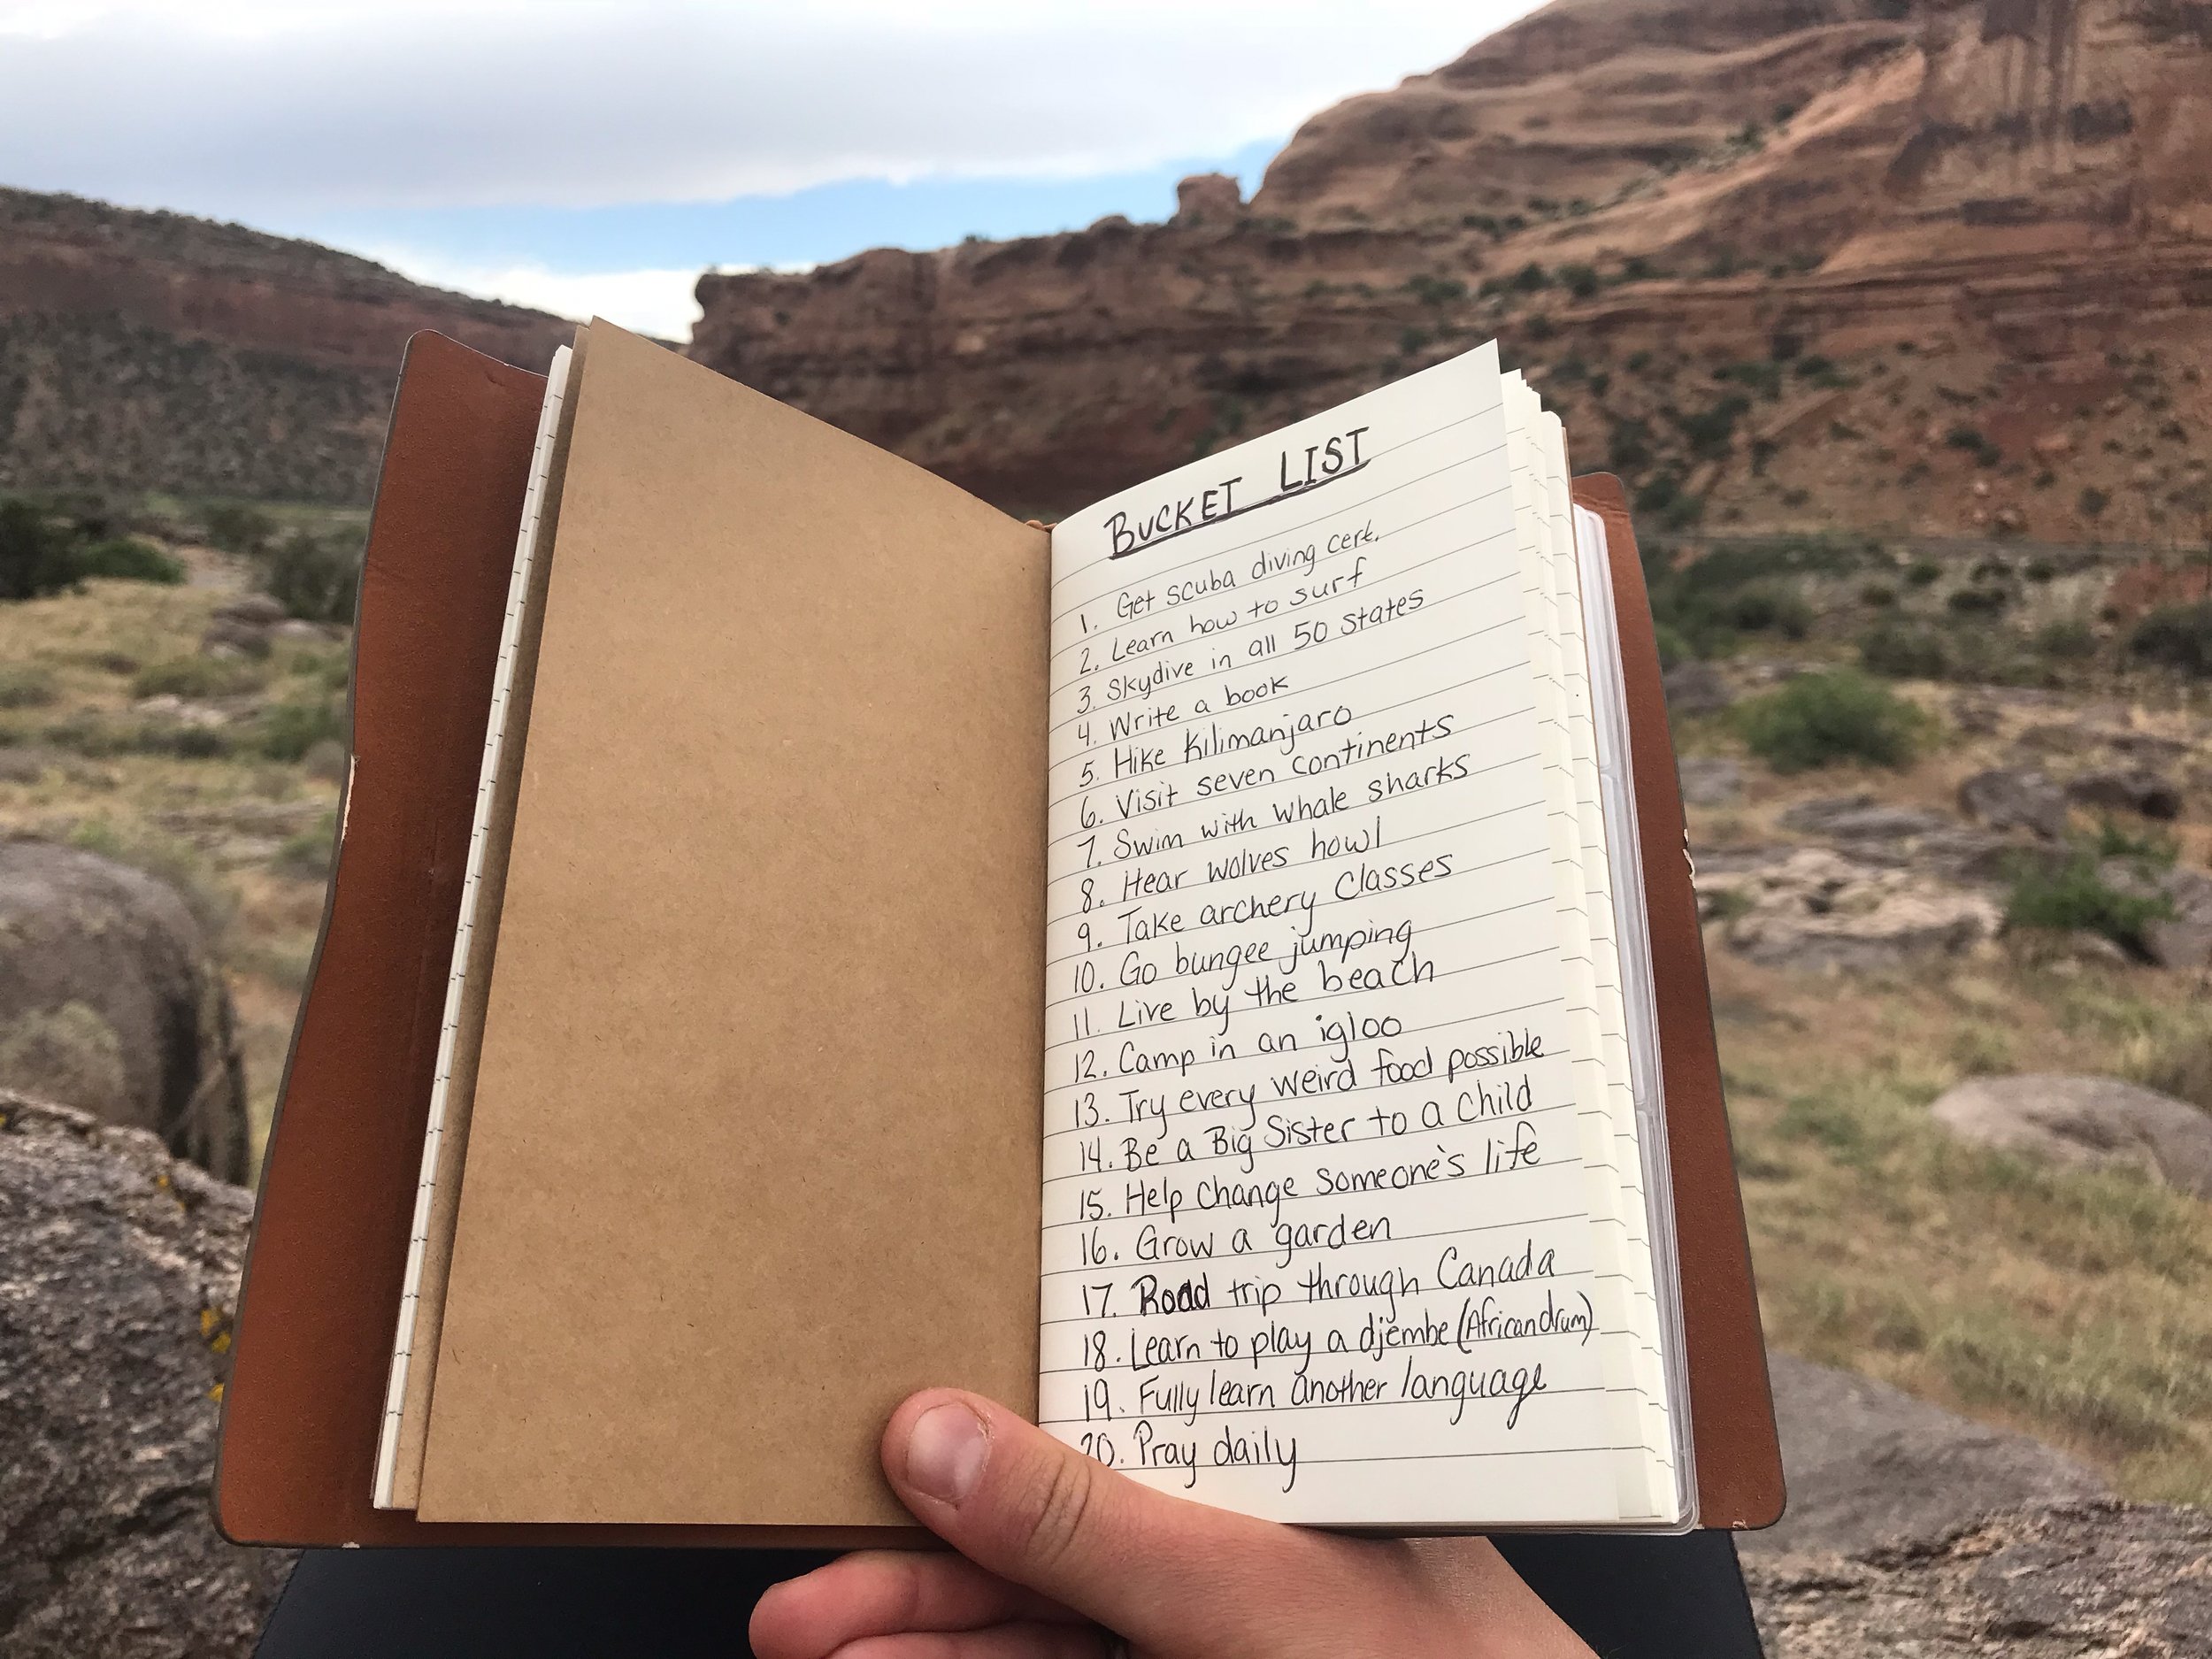 BUCKET LIST
1. Get scuba diving cert.
2. Learn how to surf
3. Skydive in all 50 states
4. Write a book
5. Hike Kilimanjaro
6. Visit seven continents
7. Swim with whale sharks
8. Hear wolves howl
9. Take archery classes
10. Go bungee jumping
11. Live by the beach
12. Camp in an igloo
13. Try every weird food possible
14. Be a Big Sister to a child
15. Help change someone's life
16. Grow a garden
17. Road trip through Canada
18. Learn to play a djembe (African drum)
19. Fully learn another language
20. Pray daily